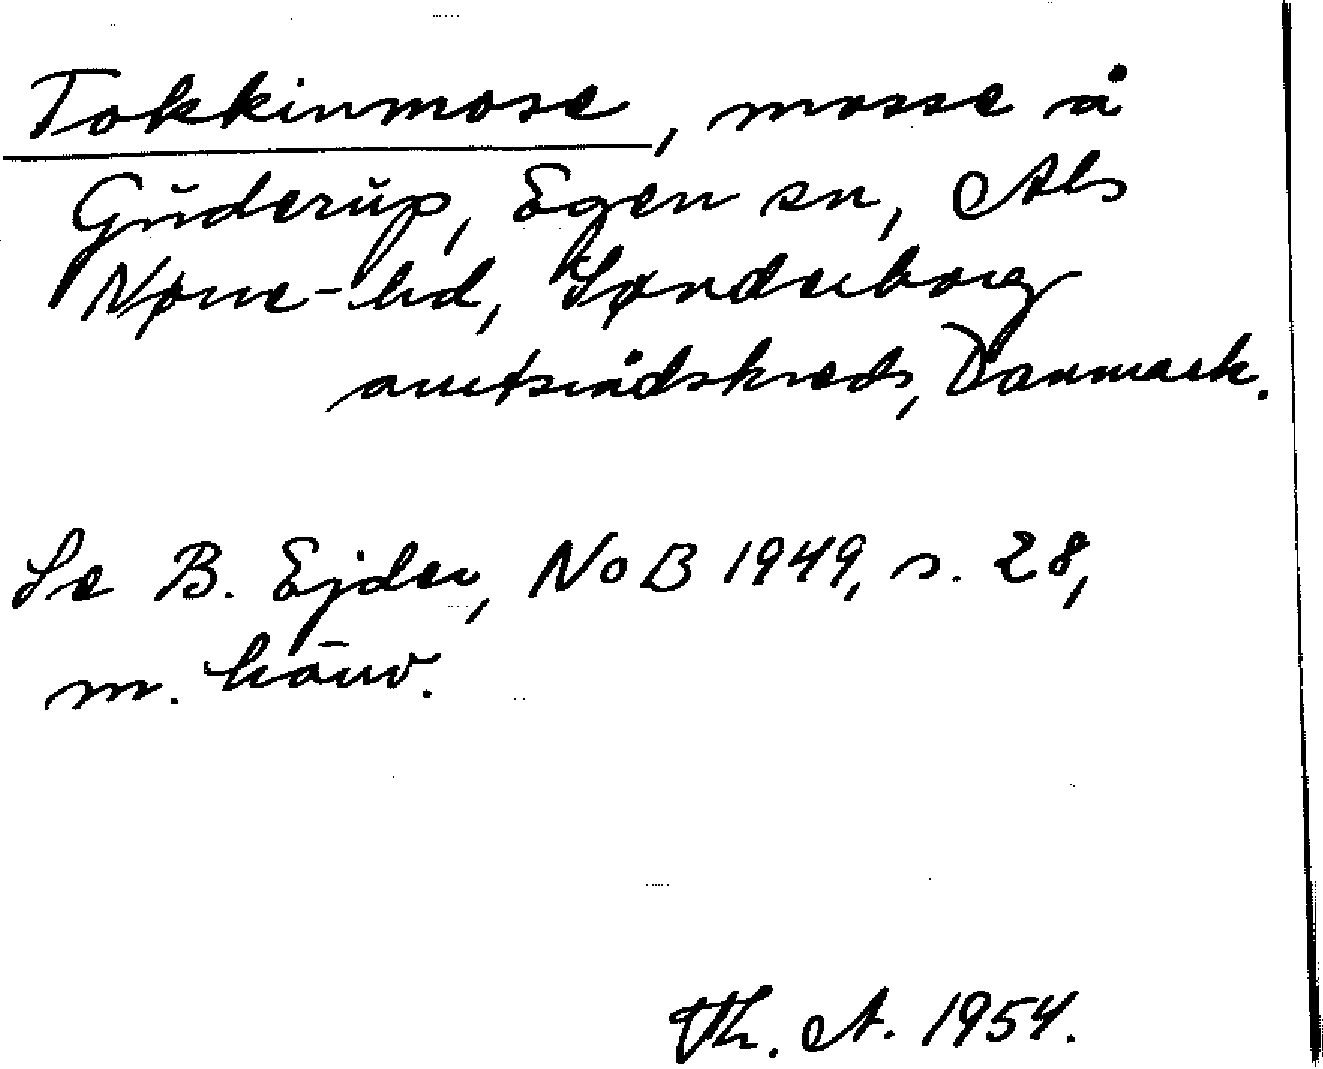 Tokkinmose, mosse å
Guderup, Egen sn, Als
Nørre-hd, Sønderborg
amtsrådskreds, Danmark.
Se B. Ejder, NoB 1949, s. 28,
m. hänv.
Th. A. 1954.